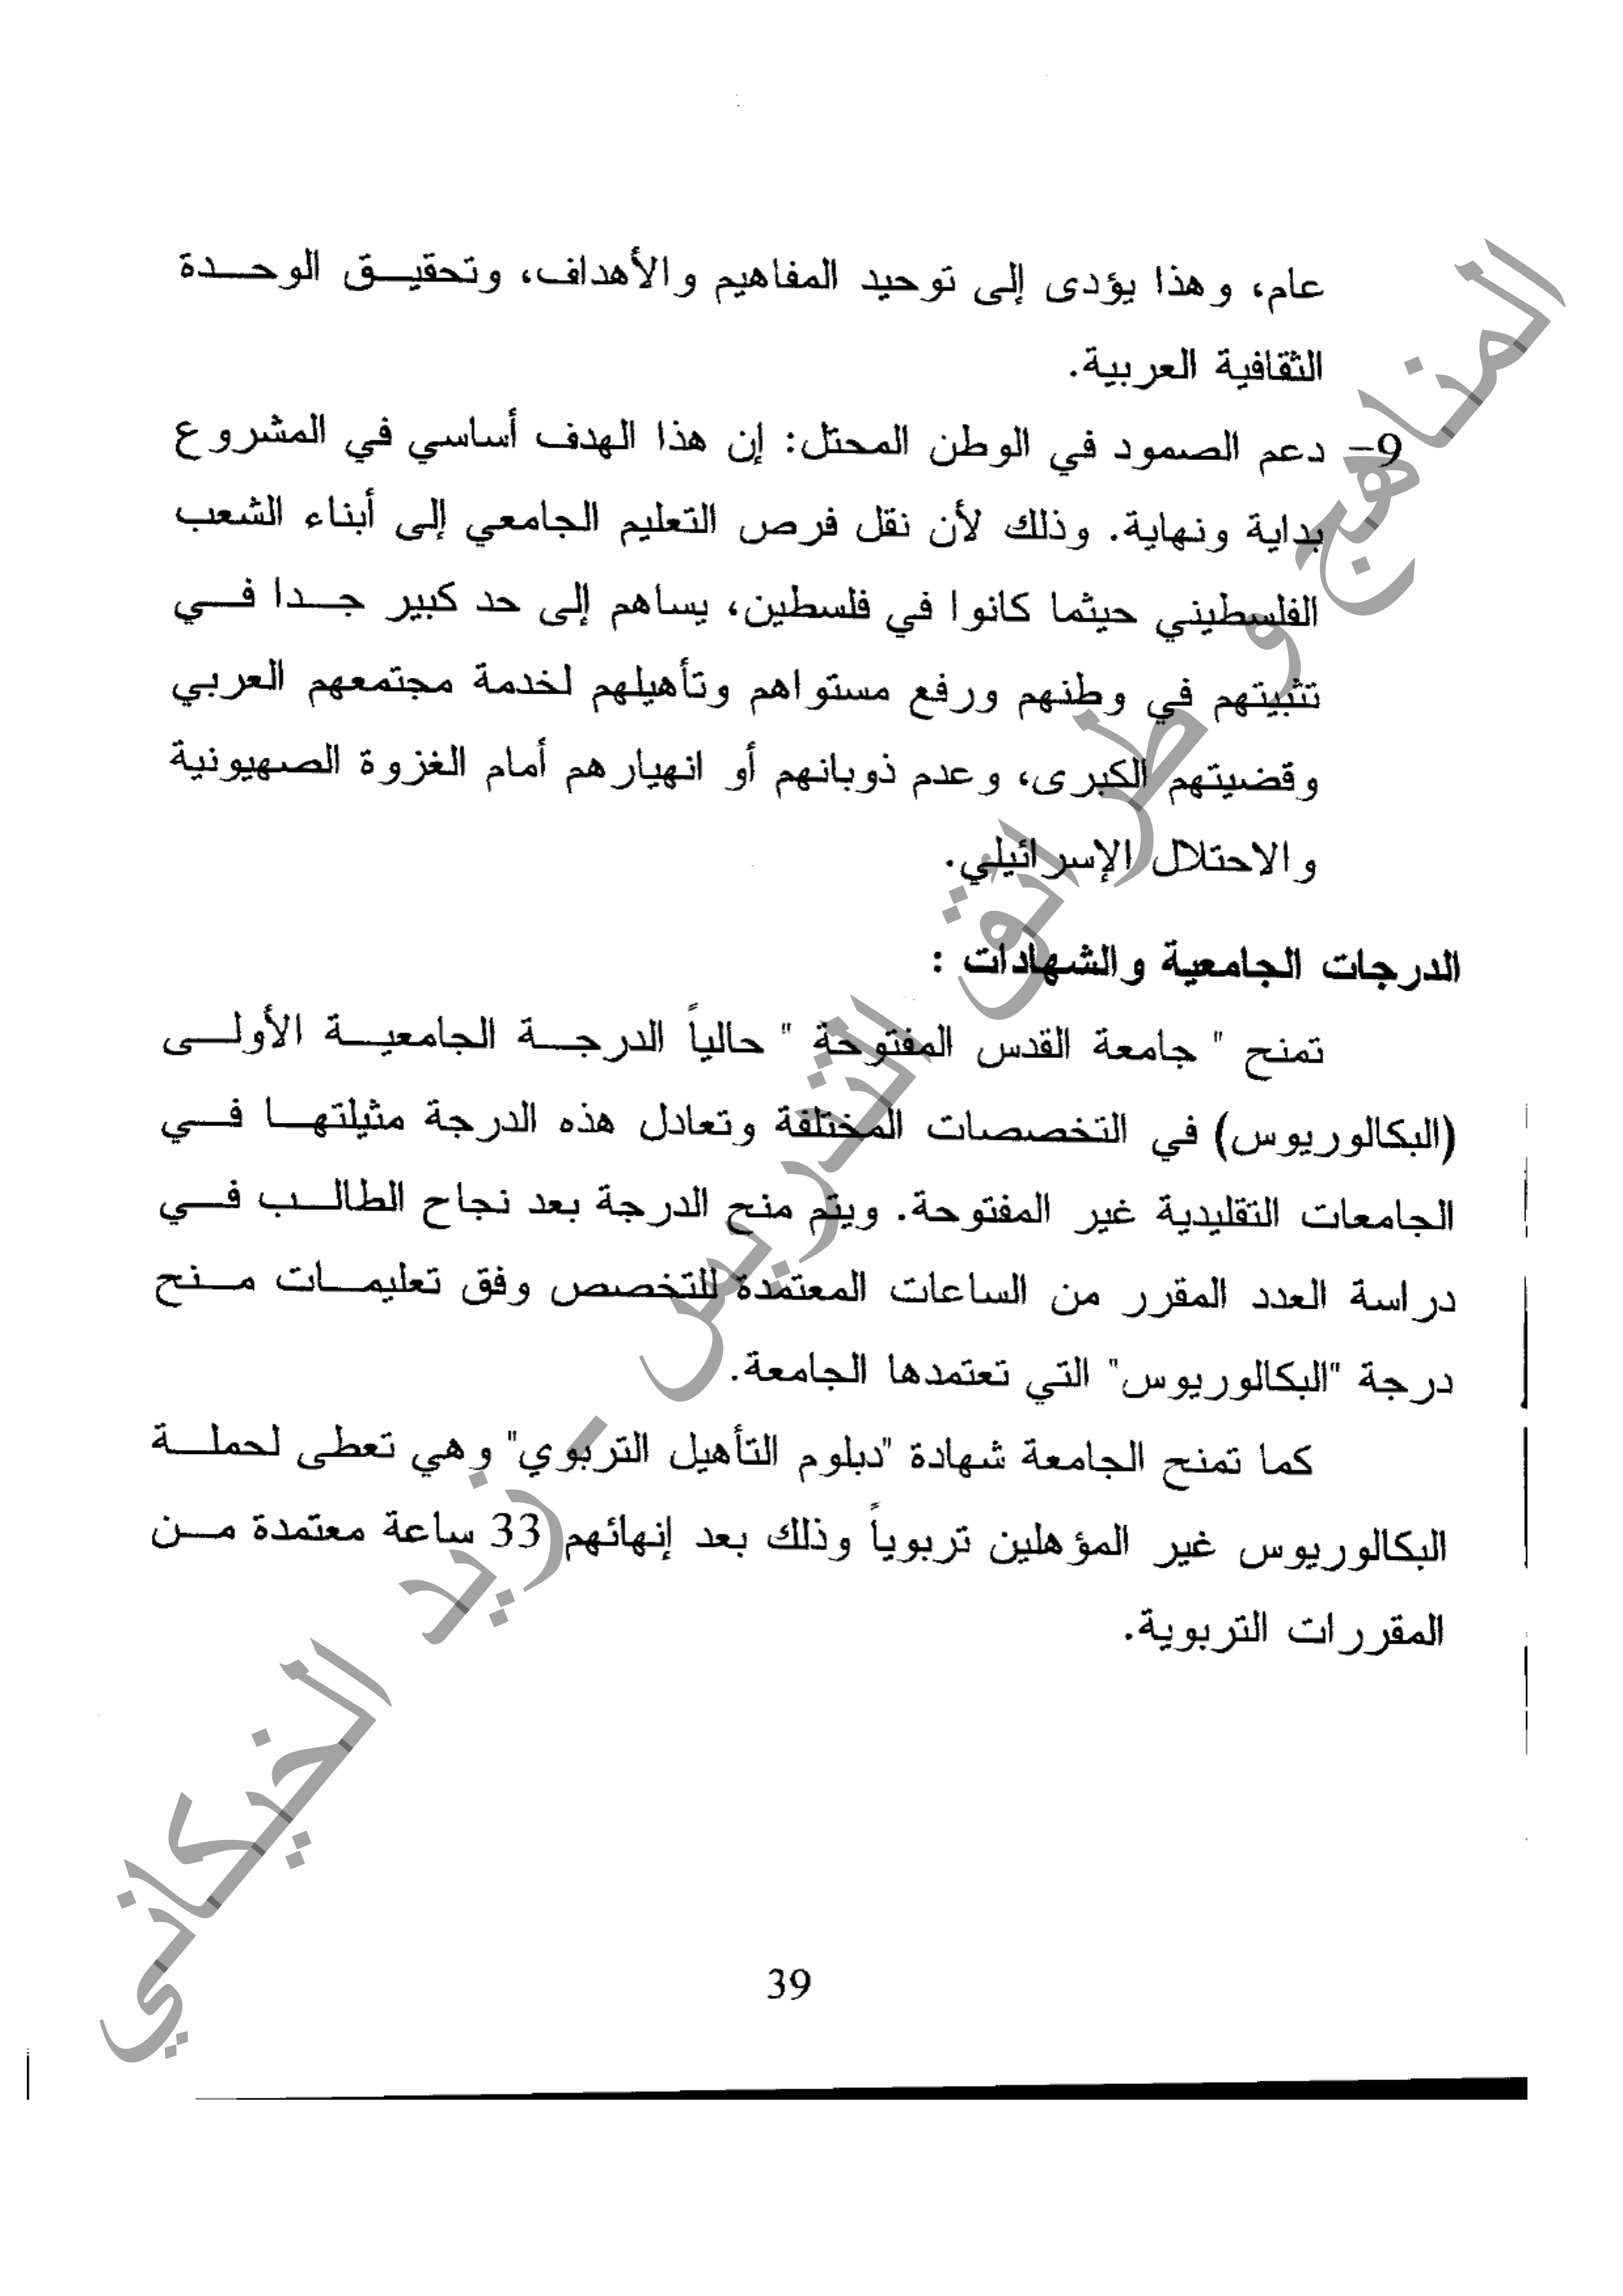 عام، وهذا يؤدى إلى توحيد المفاهيم والأهداف، وتحقيق الوحدة
الثقافية العربية.
9- دعم الصمود في الوطن المحتل: إن هذا الهدف أساسي في المشروع
بداية ونهاية. وذلك لأن نقل فرص التعليم الجامعي إلى أبناء الشعب
الفلسطيني حيثما كانوا في فلسطين، يساهم إلى حد كبير جدا في
تثبيتهم في وطنهم ورفع مستواهم وتأهيلهم لخدمة مجتمعهم العربي
وقضيتهم الكبرى، وعدم ذوبانهم أو انهيارهم أمام الغزوة الصهيونية
والاحتلال الإسرائيلي.
الدرجات الجامعية والشهادات :
تمنح " جامعة القدس المفتوحة " حالياً الدرجة الجامعية الأولى
(البكالوريوس) في التخصصات المختلفة وتعادل هذه الدرجة مثيلتها في
الجامعات التقليدية غير المفتوحة. ويتم منح الدرجة بعد نجاح الطالب في
دراسة العدد المقرر من الساعات المعتمدة للتخصص وفق تعليمات منح
درجة "البكالوريوس" التي تعتمدها الجامعة.
كما تمنح الجامعة شهادة "دبلوم التأهيل التربوي" وهي تعطى لحملة
البكالوريوس غير المؤهلين تربوياً وذلك بعد إنهائهم 33 ساعة معتمدة من
المقررات التربوية.
39
المناهج و طرائق التدريس - زيد الخيكاني